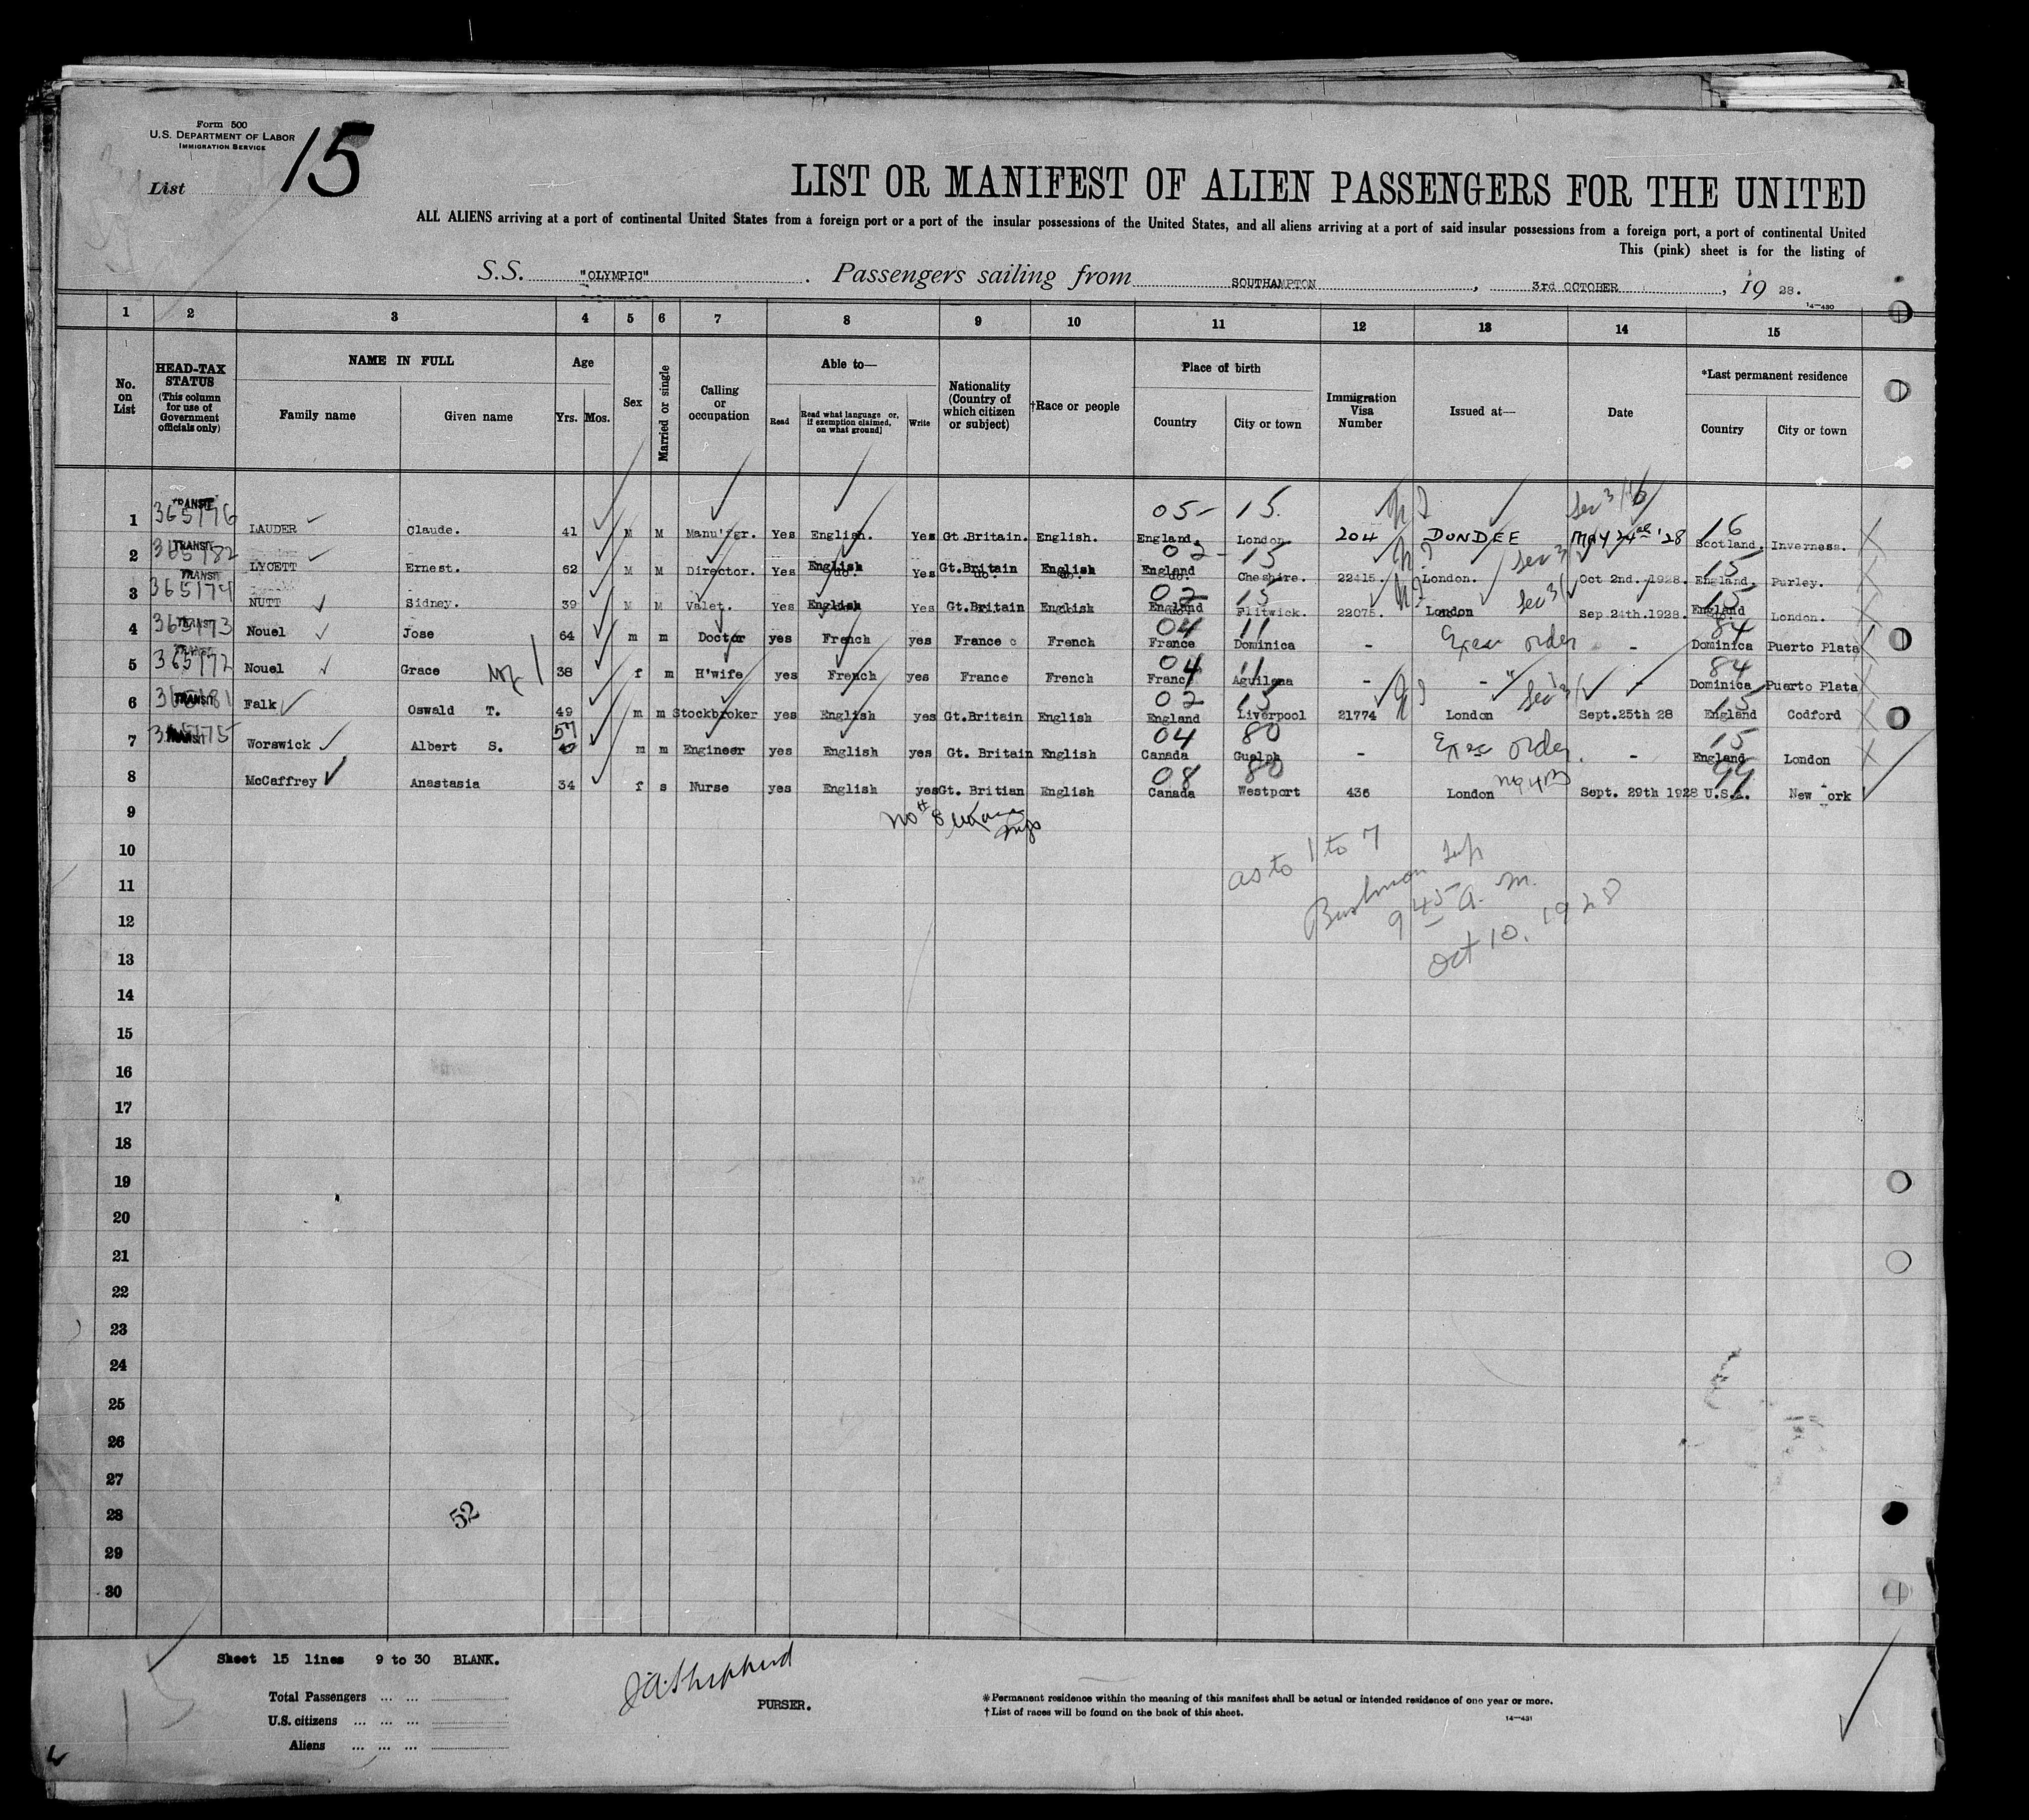 Form 500
U.S. DEPARTMENT OF LABOR
IMMIGRATION SERVICE
List 15
LIST OR MANIFEST OF ALIEN PASSENGERS FOR THE UNITED
ALL ALIENS arriving at a port of continental United States from a foreign port or a port of the insular possessions of the United States, and all aliens arriving at a port of said insular possessions from a foreign port, a port of continental United
This (pink) sheet is for the listing of
S.S. "OLYMPIC". Passengers sailing from SOUTHAMPTON, 3rd OCTOBER, 19 28.
14—430
1 2 3 4 5 6 7 8 9 10 11 12 13 14 15
No. on List
HEAD-TAX STATUS (This column for use of Government officials only)
NAME IN FULL
Family name Given name
Age
Yrs. Mos.
Sex
Married or single
Calling or occupation
Able to—
Read Read what language [or, if exemption claimed, on what ground] Write
Nationality (Country of which citizen or subject)
†Race or people
Place of birth
Country City or town
Immigration Visa Number
Issued at—
Date
*Last permanent residence
Country City or town
TRANSIT 05- 15. Sec 3/6 16
1 365176 LAUDER Claude. 41 M M Manu'fgr. Yes English. Yes Gt.Britain. English. England. London. 204 DUNDEE MAY 24 '28 Scotland. Inverness.
TRANSIT 02- 15 Sec 3 15
2 365182 LYCETT Ernest. 62 M M Director. Yes English Yes Gt.Britain English England Cheshire. 22415. London. Oct 2nd. 1928. England. Purley.
TRANSIT 02 15 Sec 3 15
3 365174 NUTT Sidney. 39 M M Valet. Yes English Yes Gt.Britain English England Flitwick. 22075. London Sep 24th.1928. England London.
TRANSIT 04 11 84
4 365173 Nouel Jose 64 m m Doctor yes French yes France French France Dominica - Exec order - Dominica Puerto Plata
04 11 84
5 365172 Nouel Grace 38 f m H'wife yes French yes France French France Aguilena - - " - Dominica Puerto Plata
TRANSIT 02 15 Sec 3 15
6 365181 Falk Oswald T. 49 m m Stockbroker yes English yes Gt.Britain English England Liverpool 21774 London Sept.25th 28 England Codford
TRANSIT 57 04 80 15
7 365175 Worswick Albert S. 47 m m Engineer yes English yes Gt. Britain English Canada Guelph - Exec order. - England London
08 80 99
8 McCaffrey Anastasia 34 f s Nurse yes English yes Gt. Britian English Canada Westport 436 London Sept. 29th 1928 U.S.A. New York
9 no # 8
10 as to 1 to 7
11
12 9 45 a. m.
13 Oct 10, 1928
14
15
16
17
18
19
20
21
22
23
24
25
26
27
28 52
29
30
Sheet 15 lines 9 to 30 BLANK.
Total Passengers ... ...
U.S. citizens ... ... ...
Aliens ... ... ...
J.A. Shepherd
PURSER.
* Permanent residence within the meaning of this manifest shall be actual or intended residence of one year or more.
† List of races will be found on the back of this sheet.
14—431